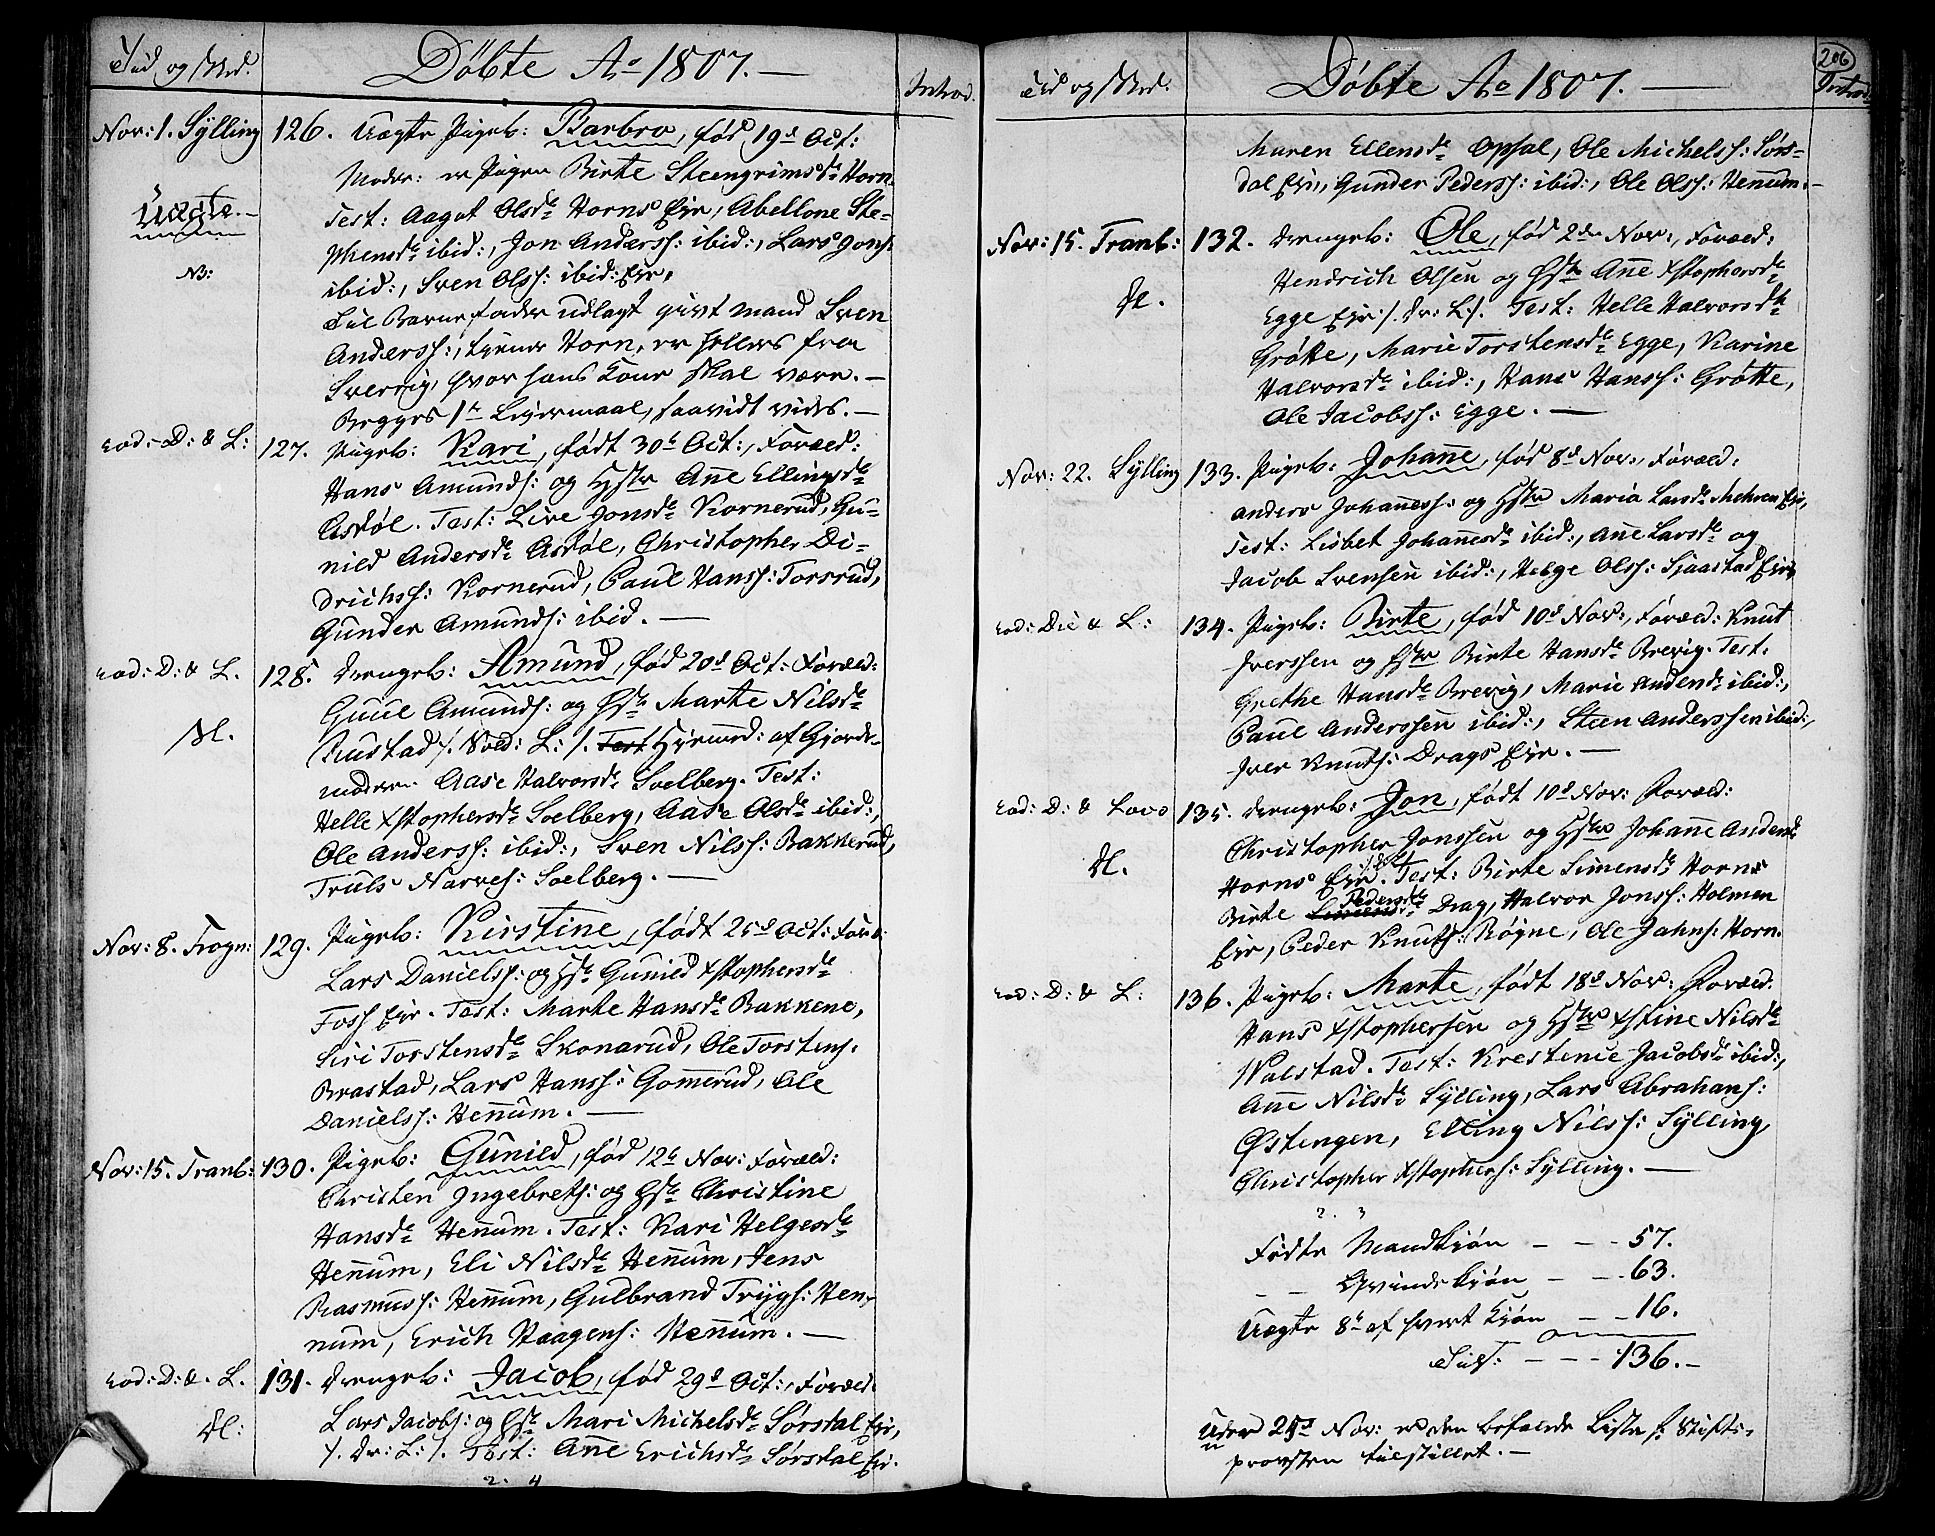 Tid og Sted.
Döbte Ao 1807. —
Introd.
Nov: 1. Sÿlling
126. Uægte Pigeb: Barbro, fød 19d Oct:
Moder: er Pigen Birte Steengrimsdr Horn.
Uægte. —
Test: Aagot Olsdr Horns Eje, Abellone Ste-
phensdr ibid:, Jon Anderss: ibid:, Lars Jons:
NB:
ibid:, Sven Olss: ibid: Eje,
Til Barnefader udlagt givt Mand Sven
Anderss:, tjener Horn, er ellers fra
Sverrig, hvor hans Kone skal være. —
Begges 1te Leiermaal, saavidt vides. —
eod: D: & L:
127. Pigeb: Kari, født 30te Oct:, Foræld:
Hans Amunds: og Hstr Añe Ellingsdr
Asdøl. Test: Live Jonsdr Kornerud, Gu-
nild Andersdr Asdøl, Christopher Di-
drichss: Kornerud, Paul Hanss: Torsrud,
Gunder Amunds: ibid. —
eod: D: & L.
128. Drengeb: Amund, fød 20d Oct: Foræld:
Guul Amunds: og Hstr Marte Nilsdr
Rustad /. Vold: L: /. Test Hjemmed: af Gjorde-
moderen Aase Halvorsdr Solberg. Test:
Helle Xstophersdr Soelberg, Aase Olsdr ibid:,
Ole Anderss: ibid:, Sven Nilss: Bakkerud,
Truls Narves: Soelberg. —
Nov: 8. Frogn:
129. Pigeb: Kirstine, født 25d Oct: For:
Lars Daniels: og Hstr Gunild Xstophersdr
Foss Eje. Test: Marte Hansdr Bakkene,
Siri Torstensdr Skonarud, Ole Torstens:
Brastad, Lars Hanss: Gom̄erud, Ole
Danielss: Hen̄um. —
Nov: 15. Tranb:
130. Pigeb: Gunild, fød 12te Nov: Foræld:
Christen Ingebrets: og Hstr Christine
Hansdr Hen̄um. Test: Kari Helgesdr
Hen̄um, Eli Nilsdr Hen̄um, Jens
Rasmuss: Hen̄um, Gulbrand Trÿgs: Hen-
num, Erich Haagens: Hen̄um. —
eod: D: & L.
131. Drengeb: Jacob, fød 29d Oct:, Foræld.
Lars Jacobs: og Hstr Mari Michelsdr Sørsdal Eje,
/. Dr: L: /. Test: Añe Erichsdr Sørsdal Eje.
Tid og Sted.
Döbte Ao 1807. —
206
Introd.
Maren Ellensdr Opsal, Ole Michelss: Sørs-
dal Eje, Gunder Pederss: ibid:, Ole Olss: Hen̄um. —
Nov: 15. Tranb:
132. Drengeb: Ole, fød 2den Nov:, Foræld:
Hendrich Olsen og Hstr Añe Xstophersdr
Egge Eje /. Dr: L: /. Test: Helle Halvorsdr
Grøtte, Marie Torstensdr Egge, Karine
Halvorsdr ibid:, Hans Hanss: Grøtte,
Ole Jacobss: Egge. —
Nov: 22. Sÿlling
133. Pigeb: Johañe, fød 8d Nov:, Foræld:
Anders Johañess: og Hstr Maria Larsdr Mehren Eje,
Test: Lisbet Johañesdr ibid:, Añe Larsdr og
Jacob Svensen ibid:, Helge Olss: Sjaastad Eje
eod: Die & L:
134. Pigeb: Birte, fød 10d Nov:, Foræld: Knut
Iverssen og Hstr Birte Hansdr Brevig. Test:
Grethe Hansdr Brevig, Marie Andersdr ibid:,
Paul Anderssen ibid:, Steen Anderssen ibid:,
Iver Knuts: Drags Eje. —
eod: D: & Loco
135. Drengeb: Jon, født 10d Nov: Foræld:
Christopher Jonssen og Hstr Johañe Andersdr
Horns Eje. Test: Birte Simensdr Horns
Birte Pedersdr Drag, Halvor Jonss: Holmen
Eje, Peder Knuts: Røgne, Ole Jahns: Horn.
eod: D: & L:
136. Pigeb: Marte, født 18d Nov: Foræld:
Hans Xstophersen og Hstr Xstine Nilsdr
Valstad. Test: Krestence Jacobsdr ibid:,
Añe Nilsdr Sÿlling, Lars Abrahams:
Østengen, Elling Nilss: Sÿlling,
Christopher Xstophers: Sÿlling. —
Fødte Mandkjøn — — 57.
— — Qvindekjøn — — 63.
Uægte 8te af hvert Kjøn — — 16.
Til: — — — 136. —
Under 25d Nov: er den befalede Liste h: Stifts-
provsten tilstillet. —